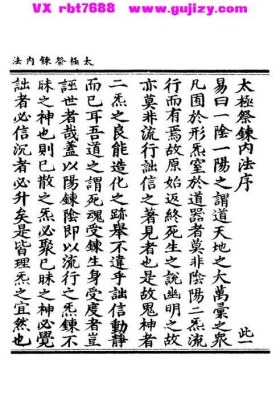 VX rbt7688 www.gujizy.com
太極祭鍊內法
太極祭鍊內法序 此一
易曰一陰一陽之謂道天地之大萬彙之衆
凡囿於形炁窒於道器者莫非陰陽二炁流
行而有焉故原始返終死生之說幽明之故
亦莫非流行詘信之著見者也是故鬼神者
二炁之良能造化之跡舉不違乎詘信動靜
而已耳吾道之謂死魂受鍊生身受度者豈
誣世者哉蓋以陽鍊陰即以流行之炁鍊不
昧之神也則已散之炁必聚已昧之神必覺
詘者必信沉者必升矣是皆理炁之宜然也